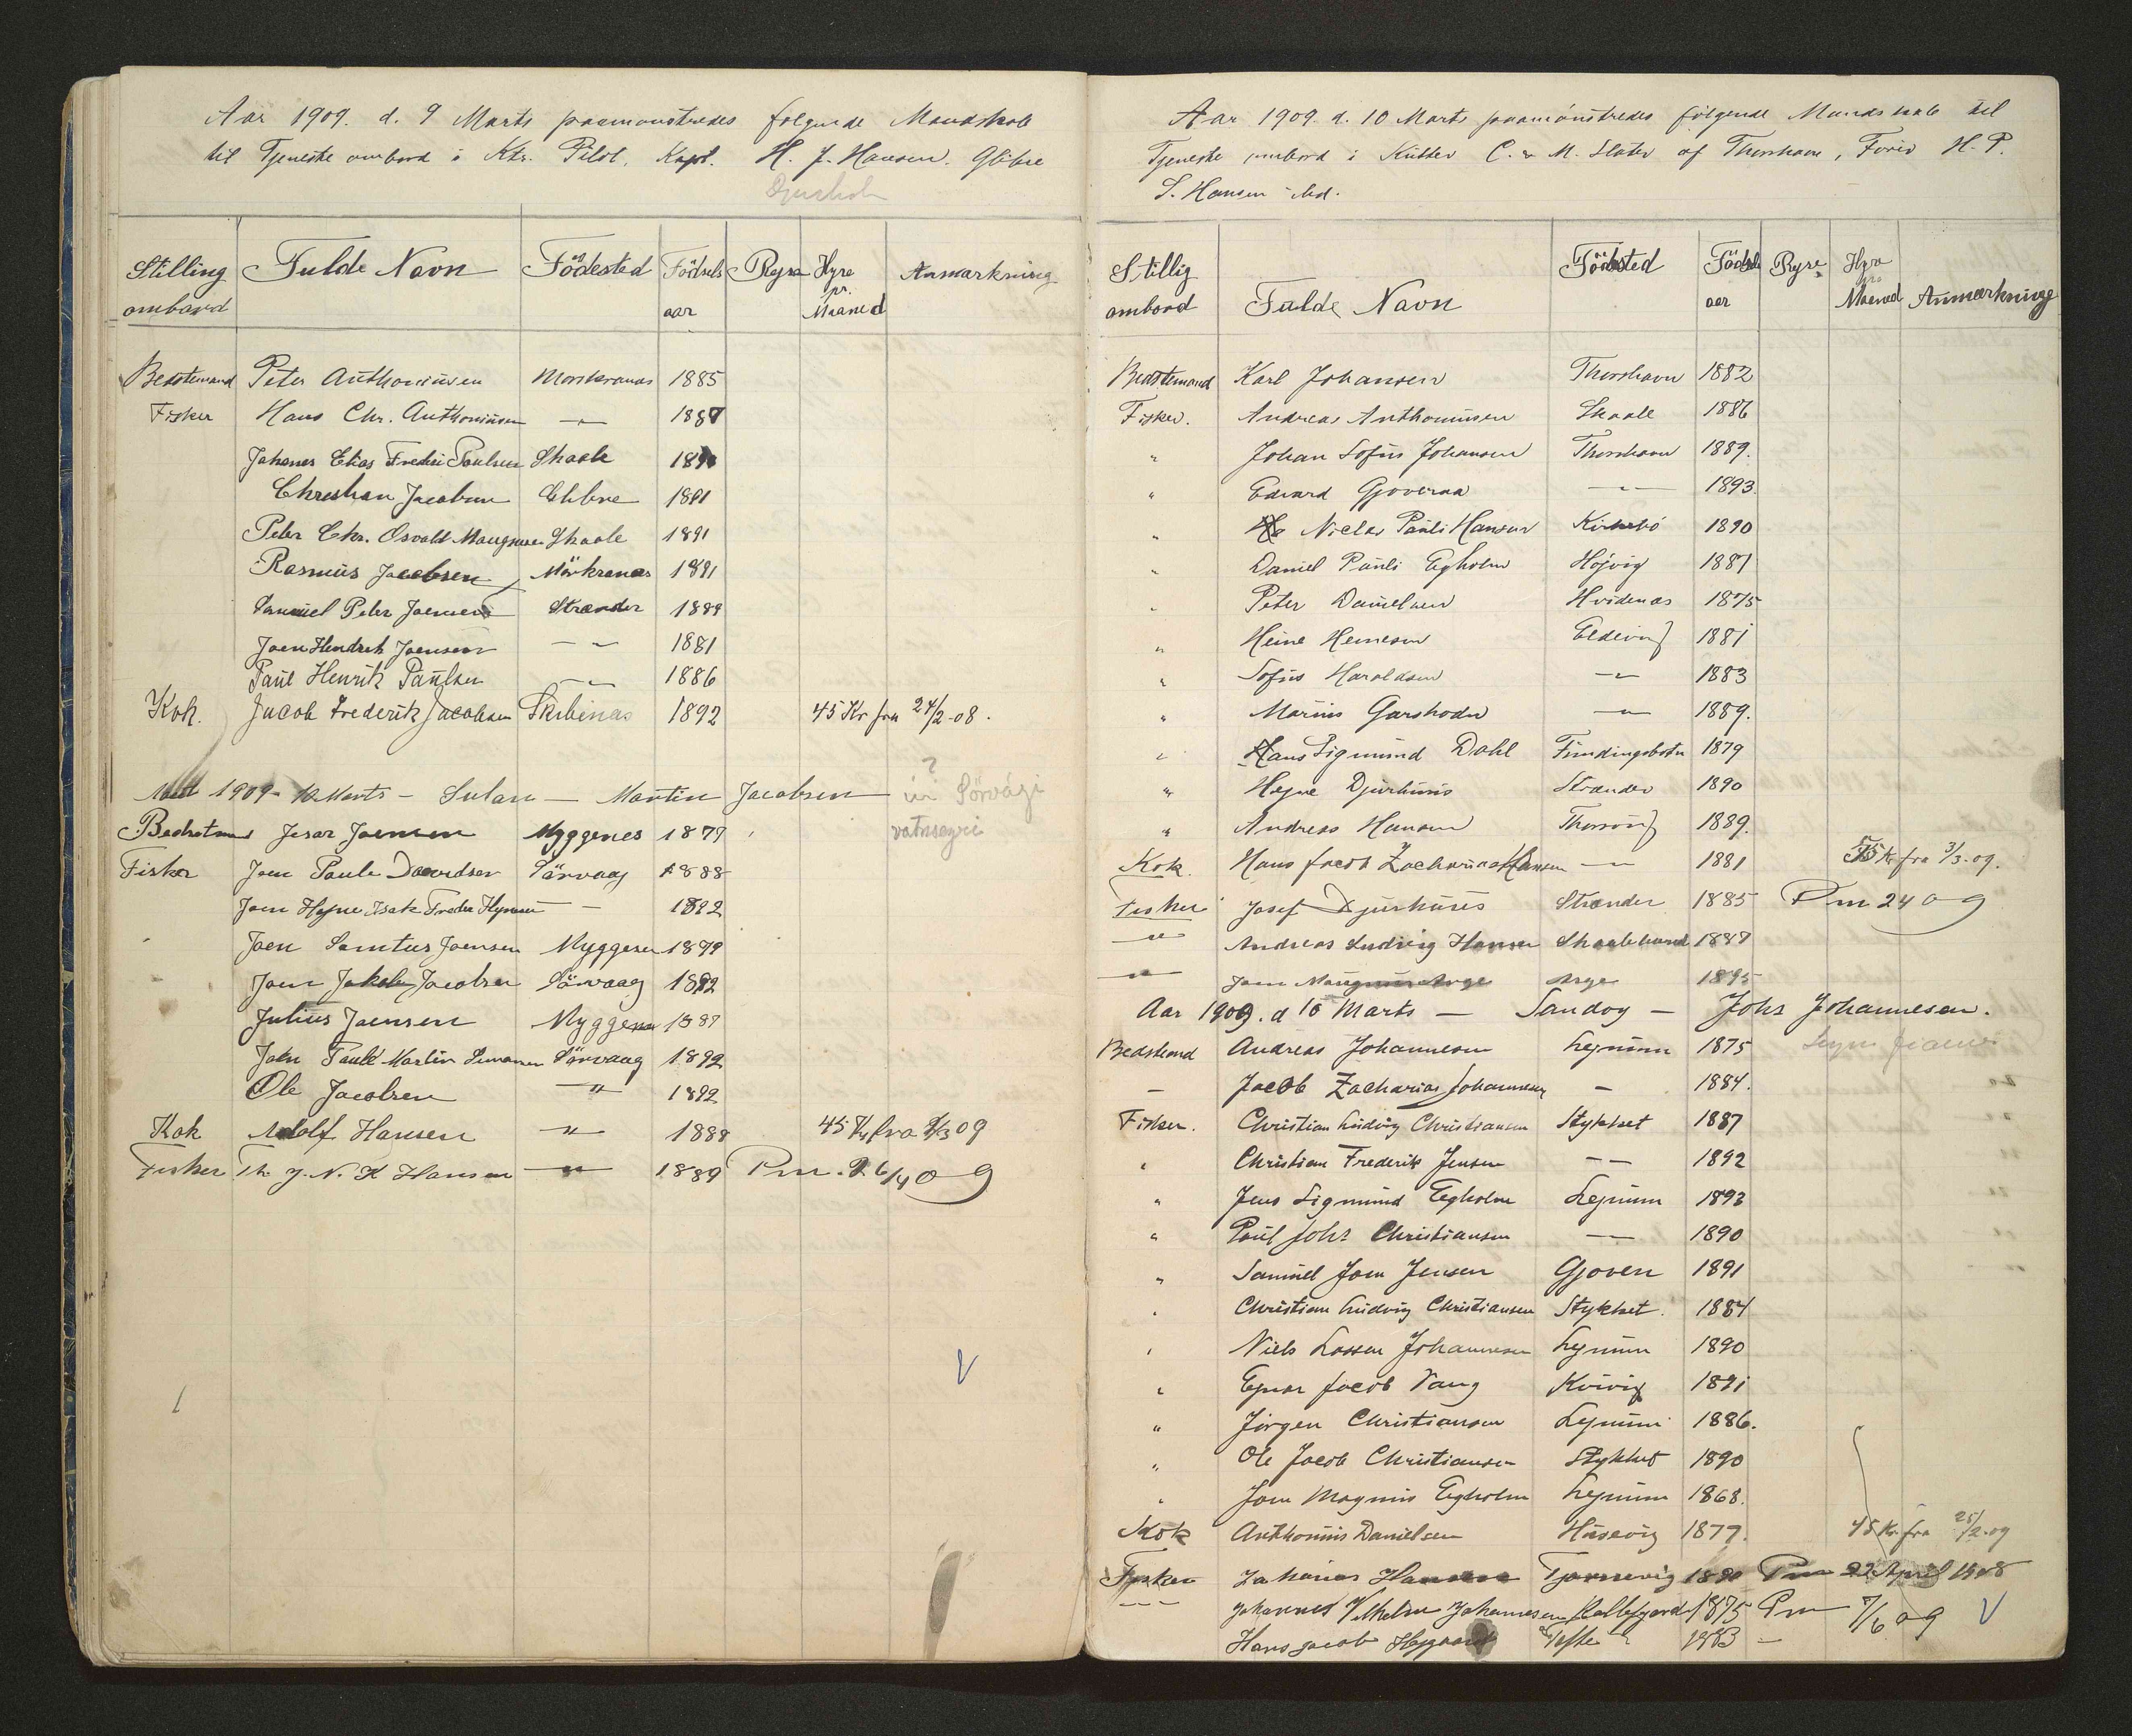 Aar 1909. d. 9 Marts paamonstredes følgende Mandskab
til Tjeneste ombord i Ktr. Pilot, Kapt. H. J. Hansen. Glibre
Stilling ombord Fulde Navn Födested Födsels aar Rejse Hyre pr. Maaned Anmærkning
Bedstemand Peter Anthoniusen Morskranes 1885
Fisker Hans Chr. Anthoniusen -"- 1887
Johanes Elias Frederi Poulsen Skaale
Christian Jacobsen Glibre 1891
Peter Chr. Osvald Maugnusen Skaale 1891
Rasmus Jacobsen Mörkranes 1891
Samuel Peter Joensen Strender 1889
Joen Hendrik Joensen -"- 1881
Paul Henrik Paulsen -"- 1886
Kok. Jacob Frederik Jacobsen Skibenæs 1892 45 Kr fra 24/2-08.
1909 - 10 Marts - Sulan - Martin Jacobsen ? úr Sörvági
Bedstemand Jesar Joensen Myggenes 1877 vatnsoyri
Fisker Joen Paule Davidsen Sörvaag 1888
Joen Hejne Isak Freder Hejnesen - 1892
Joen Samtus Joensen Myggenes 1879
Joen Jakob Jacobsen Sörvaag 1892
Julius Joensen Myggenes 1887
Joen Paule Martin Simonsen Sörvaag 1892
Ole Jacobsen -"- 1892
Kok Adolf Hansen -"- 1888 45 Kr fra 2/3 09
Fisker Th. J. N. K Hansen -"- 1889 Pm. 26/4 09
Aar 1909. d. 10 Marts paamónstredes følgende Mandskab til
Tjeneste ombord i Kutter C. & M. Slater af Thorshavn, Förer H. P.
S. Hansen ibd.
Stillig ombord Fulde Navn Födested Födsels aar Rejse Hyre pro Maaned Anmærkning
Bedstemand Karl Johansen Thorshavn 1882
Fisker. Andreas Anthoniusen Skaale 1886
" Johan Sofus Johansen Thorshavn 1889.
" Edvard Gjoveraa -"- 1893.
" Niclas Pauli Hansen Kirkebö 1890
" Daniel Pauli Egholm Höjvig 1887
" Peter Danielsen Hvidenæs 1875
" Heine Heinesen Eldevig 1881
" Sofus Haraldsen -"- 1883
" Marius Garshodn -"- 1889.
" Hans Sigmund Dahl Fundingsbotn 1879
" Hejne Djurhuus Strender 1890
" Andreas Hansen 1889.
Kok. Hans Jacob Zacharias Hansen -"- 1881 55 Kr fra 3/3-09.
Fisker Josef Djurhuus Strender 1885 Pm 24 09
-"- Andreas Ludvig Hansen
-"- Joen Maugnus Arge Arge 1895
Aar 1909. d 10 Marts - Sandoy - Johs Johannesen.
Bedstemand Andreas Johannesen Lejnum 1875
- Jacob Zacharias Johannesen - 1884.
Fisker. Christian Ludvig Christiansen Stykket 1887
" Christian Frederik Jensen -"- 1892
" Jens Sigmund Egholm Lejnum 1893
" Poul Johs Christiansen -"- 1890
" Samuel Joen Jensen Gjoven 1891
" Christian Ludvig Christiansen Stykket. 1884
" Niels Lassen Johannesen Lejnum 1890
" Ejnar Jacob Vang Kvivig 1891
" Jörgen Christiansen Lejnum 1886.
" Ole Jacob Christiansen Stykket 1890
" Joen Magnus Egholm Lejnum 1868.
Kok Anthonius Danielsen Husevig 1877. 45 Kr fra 25/2-09
Fisker Zakarias Hansen Tjornevig 1890 Pm 22 April 1908
-"- Johannes Vilhelm Johannesen Kallsgjord 1875 Pm 7/6 09
Hans Jacob Højgaard